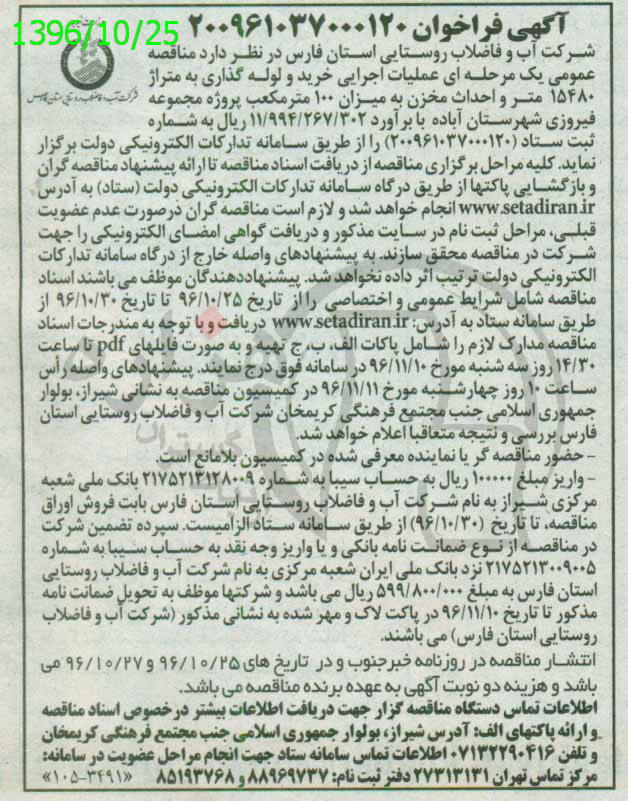 1396/10/25
آگهی فراخوان ۲۰۰۹۶۱۰۳۷۰۰۰۱۲۰
شرکت آب و فاضلاب روستایی استان فارس
شرکت آب و فاضلاب روستایی استان فارس در نظر دارد مناقصه
عمومی یک مرحله ای عملیات اجرایی خرید و لوله گذاری به متراژ
۱۵۴۸۰ متر و احداث مخزن به میزان ۱۰۰ مترمکعب پروژه مجموعه
فیروزی شهرستان آباده با برآورد ۱۱/۹۹۴/۲۶۷/۳۰۲ ریال به شماره
ثبت ستاد (۲۰۰۹۶۱۰۳۷۰۰۰۱۲۰) را از طریق سامانه تدارکات الکترونیکی دولت برگزار
نماید. کلیه مراحل برگزاری مناقصه از دریافت اسناد مناقصه تا ارائه پیشنهاد مناقصه گران
و بازگشایی پاکتها از طریق درگاه سامانه تدارکات الکترونیکی دولت (ستاد) به آدرس
www.setadiran.ir انجام خواهد شد و لازم است مناقصه گران درصورت عدم عضویت
قبلی، مراحل ثبت نام در سایت مذکور و دریافت گواهی امضای الکترونیکی را جهت
شرکت در مناقصه محقق سازند. به پیشنهادهای واصله خارج از درگاه سامانه تدارکات
الکترونیکی دولت ترتیب اثر داده نخواهد شد. پیشنهاددهندگان موظف می باشند اسناد
مناقصه شامل شرایط عمومی و اختصاصی را از تاریخ ۹۶/۱۰/۲۵ تا تاریخ ۹۶/۱۰/۳۰ از
طریق سامانه ستاد به آدرس: www.setadiran.ir دریافت و با توجه به مندرجات اسناد
مناقصه مدارک لازم را شامل پاکات الف، ب، ج تهیه و به صورت فایلهای pdf تا ساعت
۱۴/۳۰ روز سه شنبه مورخ ۹۶/۱۱/۱۰ در سامانه فوق درج نمایند. پیشنهادهای واصله رأس
ساعت ۱۰ روز چهارشنبه مورخ ۹۶/۱۱/۱۱ در کمیسیون مناقصه به نشانی شیراز، بولوار
جمهوری اسلامی جنب مجتمع فرهنگی کریمخان شرکت آب و فاضلاب روستایی استان
فارس بررسی و نتیجه متعاقبا اعلام خواهد شد.
- حضور مناقصه گر یا نماینده معرفی شده در کمیسیون بلامانع است.
- واریز مبلغ ۱۰۰۰۰۰ ریال به حساب سیبا به شماره ۲۱۷۵۲۱۲۱۲۸۰۰۹ بانک ملی شعبه
مرکزی شیراز به نام شرکت آب و فاضلاب روستایی استان فارس بابت فروش اوراق
مناقصه، تا تاریخ (۹۶/۱۰/۳۰) از طریق سامانه ستاد الزامیست. سپرده تضمین شرکت
در مناقصه از نوع ضمانت نامه بانکی و یا واریز وجه نقد به حساب سیبا به شماره
۲۱۷۵۲۱۳۰۰۹۰۰۵ نزد بانک ملی ایران شعبه مرکزی به نام شرکت آب و فاضلاب روستایی
استان فارس به مبلغ ۵۹۹/۸۰۰/۰۰۰ ریال می باشد و شرکتها موظف به تحویل ضمانت نامه
مذکور تا تاریخ ۹۶/۱۱/۱۰ در پاکت لاک و مهر شده به نشانی مذکور (شرکت آب و فاضلاب
روستایی استان فارس) می باشند.
انتشار مناقصه در روزنامه خبرجنوب و در تاریخ های ۹۶/۱۰/۲۵ و ۹۶/۱۰/۲۷ می
باشد و هزینه دو نوبت آگهی به عهده برنده مناقصه می باشد.
اطلاعات تماس دستگاه مناقصه گزار جهت دریافت اطلاعات بیشتر درخصوص اسناد مناقصه
و ارائه پاکتهای الف: آدرس شیراز، بولوار جمهوری اسلامی جنب مجتمع فرهنگی کریمخان
و تلفن ۰۷۱۳۲۲۹۰۴۱۶ اطلاعات تماس سامانه ستاد جهت انجام مراحل عضویت در سامانه:
مرکز تماس تهران ۲۷۳۱۳۱۳۱ دفتر ثبت نام: ۸۸۹۶۹۷۳۷ و ۸۵۱۹۳۷۶۸ «۱۰۵-۳۴۹۱»